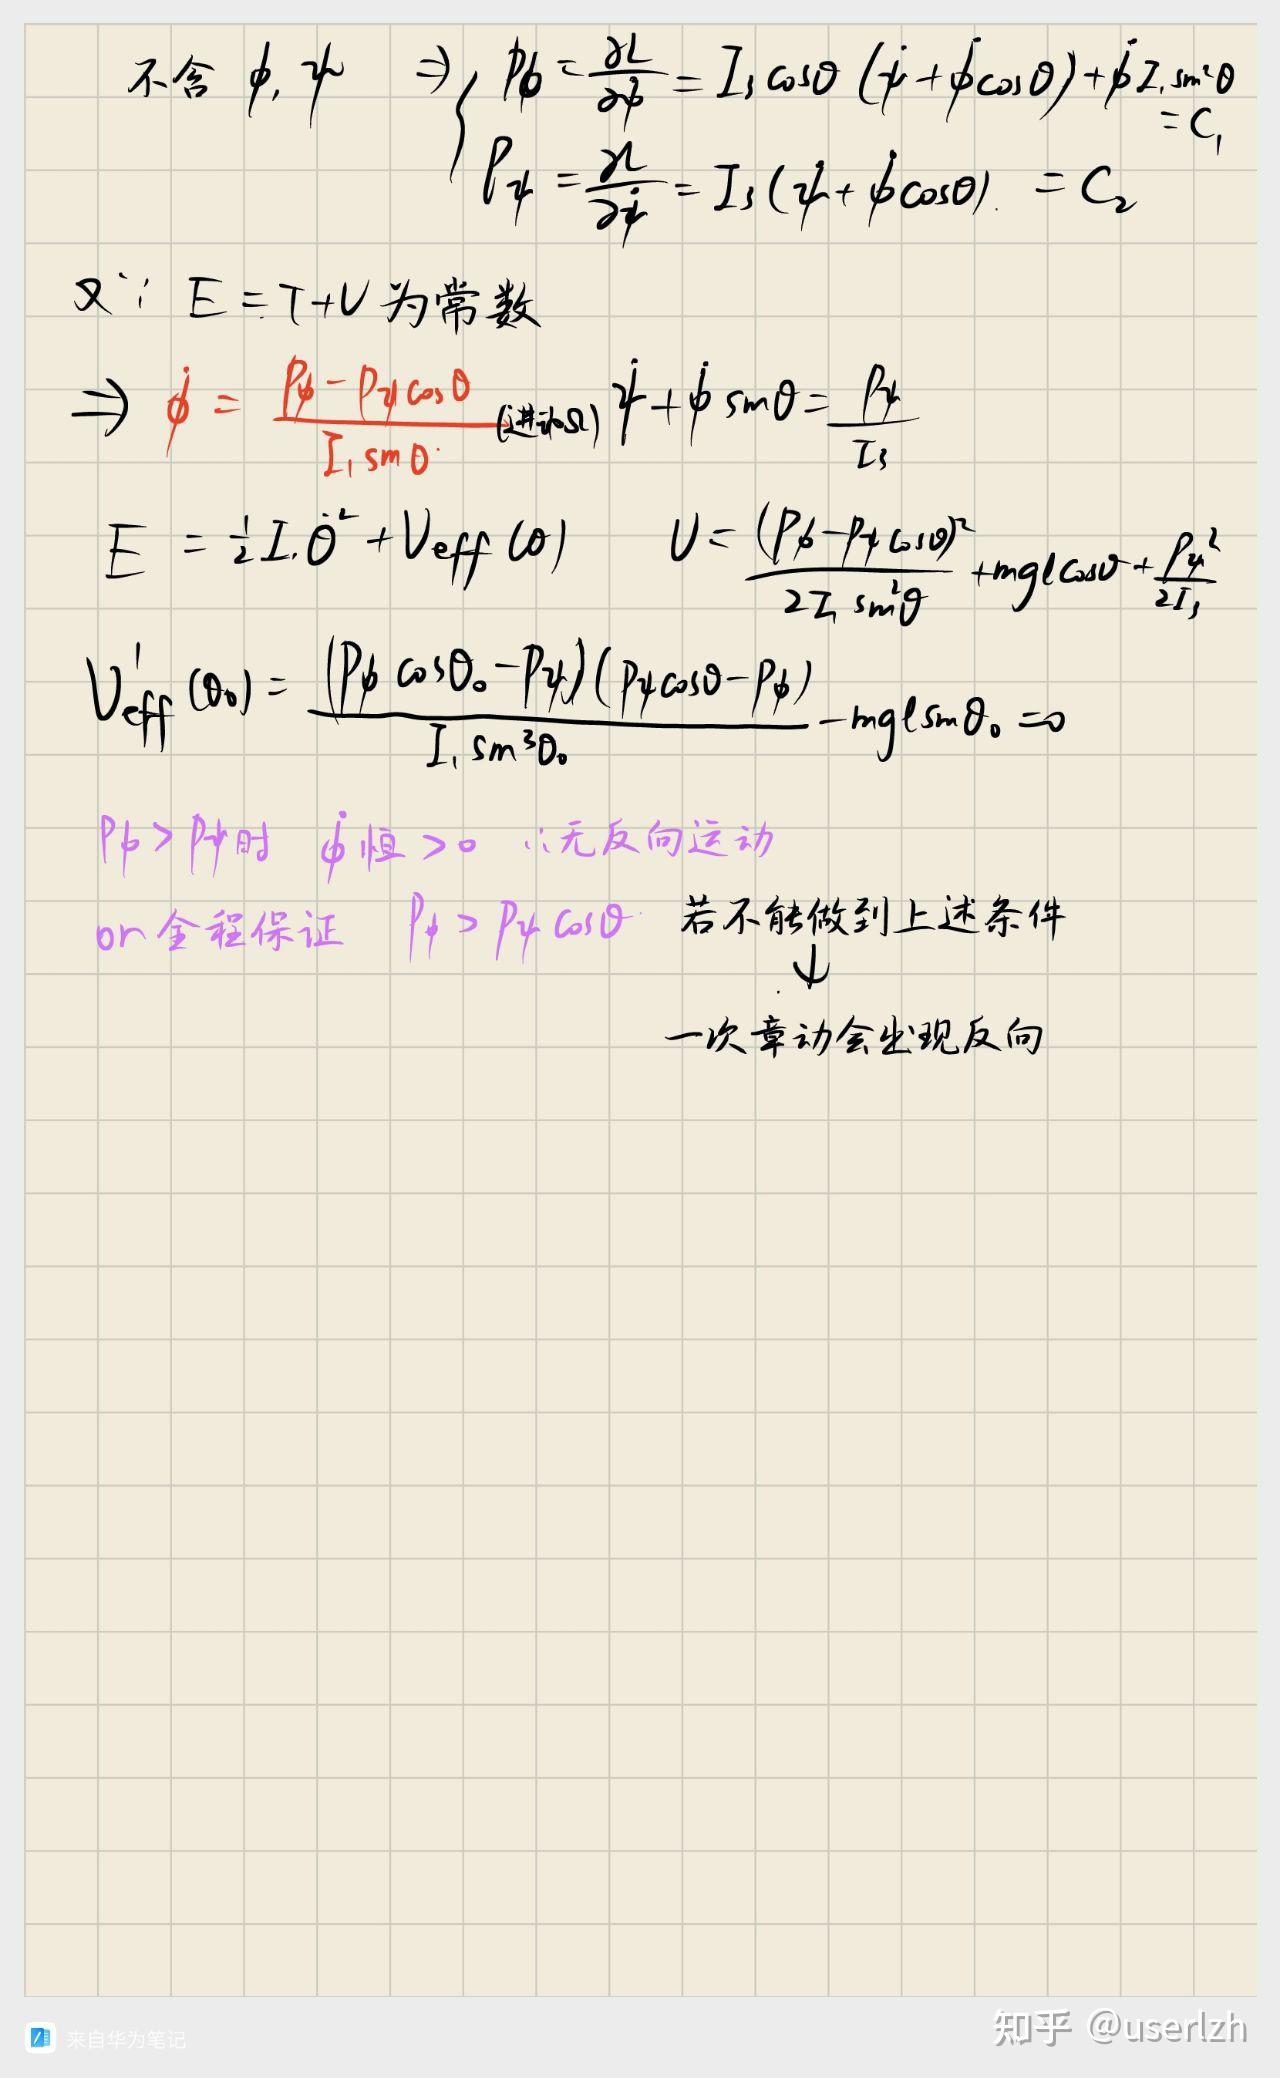 不含 ϕ, ψ ⇒ { Pϕ = ∂L/∂ϕ̇ = I₃ cosθ (ψ̇ + ϕ̇ cosθ) + ϕ̇ I₁ sin²θ
= C₁
Pψ = ∂L/∂ψ̇ = I₃ (ψ̇ + ϕ̇ cosθ). = C₂
又∵ E = T + U 为常数
⇒ ϕ̇ = (Pϕ − Pψ cosθ)/(I₁ sinθ) (进动Ω) ψ̇ + ϕ̇ sinθ = Pψ/I₃
E = ½ I₁ θ̇² + Ueff (θ) U = (Pϕ − Pψ cosθ)²/(2I₁ sin²θ) + mgl cosθ + Pψ²/(2I₃)
U′eff (θ₀) = (Pϕ cosθ₀ − Pψ)(Pψ cosθ − Pϕ)/(I₁ sin³θ₀) − mgl sinθ₀ = 0
Pϕ > Pψ时 ϕ̇恒 > 0 ∴无反向运动
or 全程保证 Pϕ > Pψ cosθ 若不能做到上述条件
↓
一次章动会出现反向
来自华为笔记
知乎 @userlzh